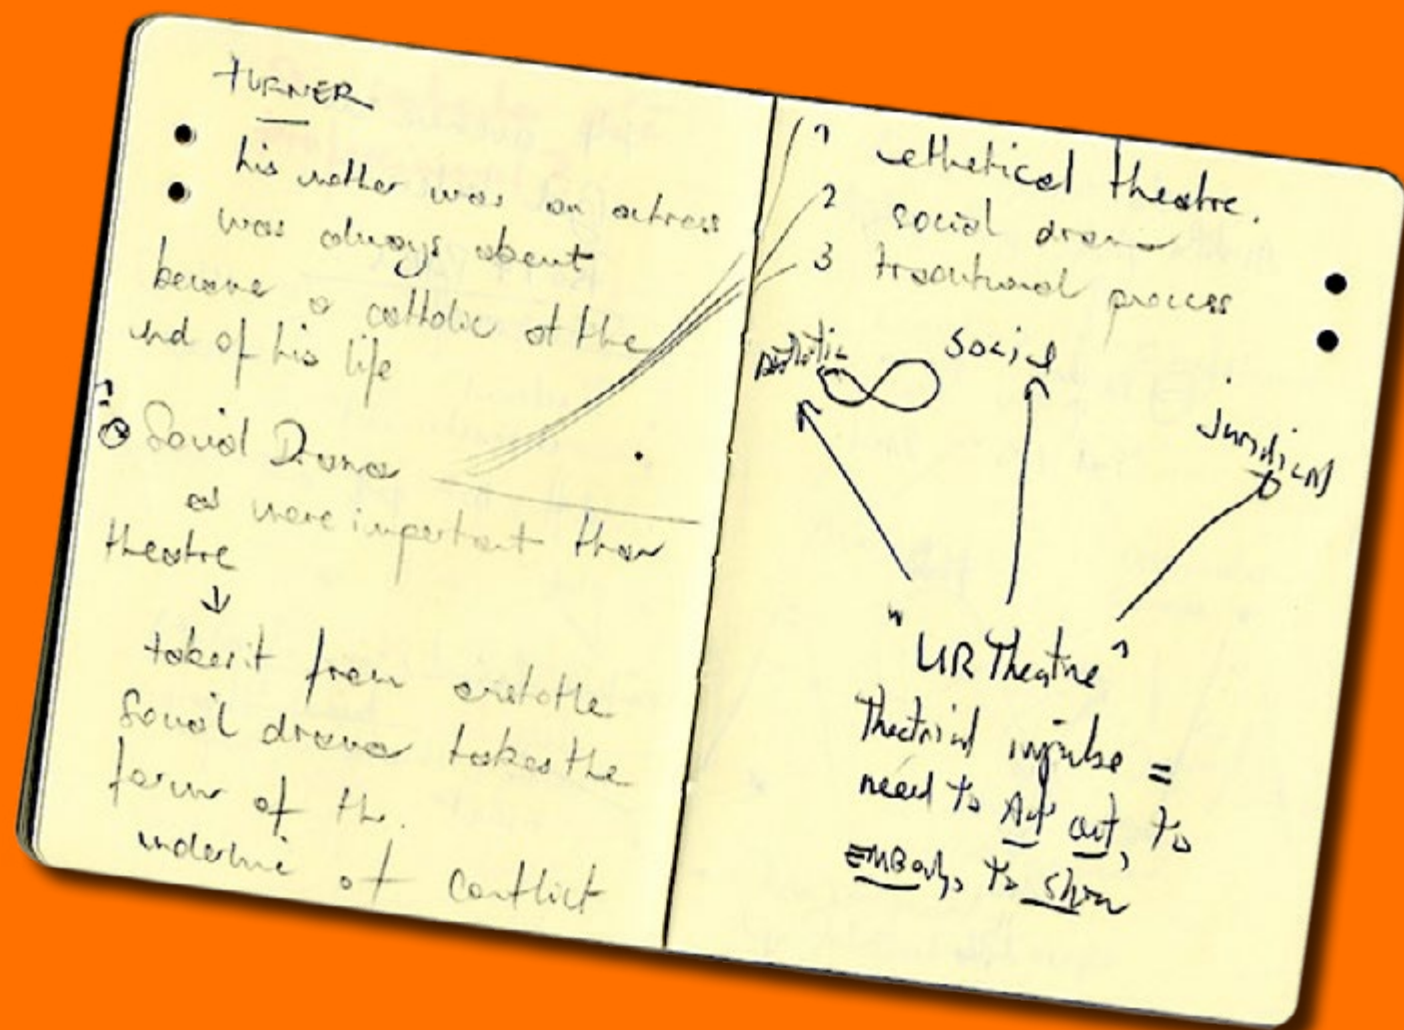 TURNER
his mother was an actress
was always absent
become a catholic at the
end of his life
Social Drama
as more important than
theatre
↓
takes it from aristotle
Social drama takes the
form of th.
of conflict
1 esthetical theatre.
2 social drama
3 process
Social
Juridical
"UR Theatre"
Theatrical impulse =
need to Act out, to
EMBody, to show